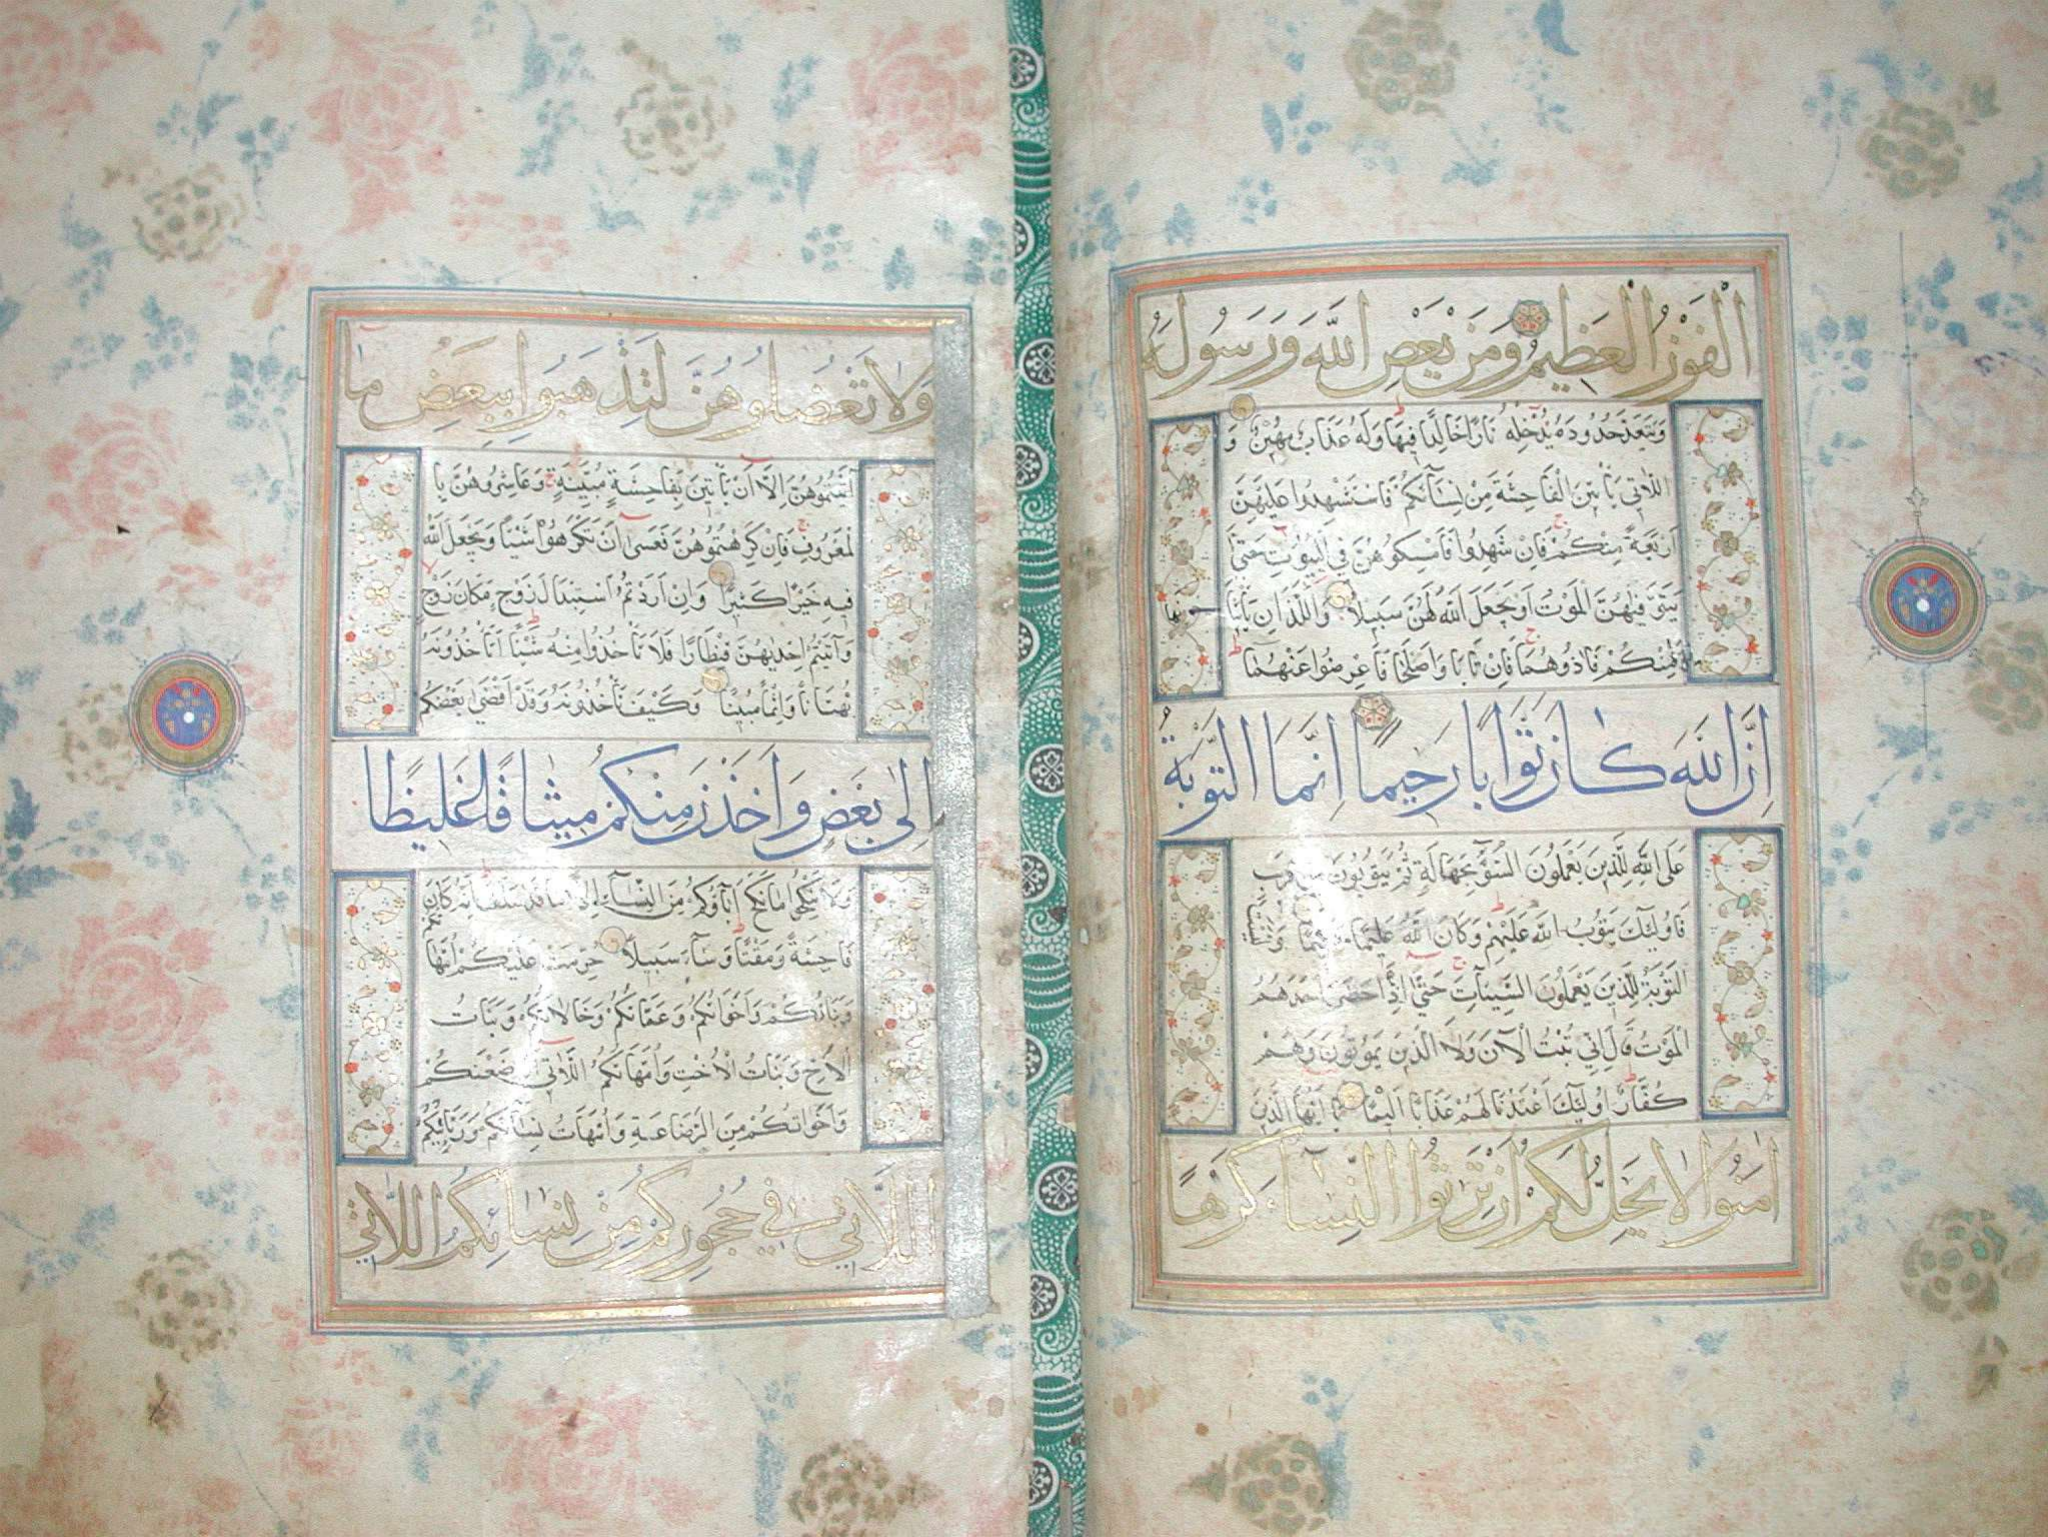 الْفَوْزُ الْعَظِيمُ وَمَنْ يَعْصِ اللَّهَ وَرَسُولَهُ
وَيَتَعَدَّ حُدُودَهُ يُدْخِلْهُ نَارًا خَالِدًا فِيهَا وَلَهُ عَذَابٌ مُهِينٌ وَ
اللَّاتِي يَأْتِينَ الْفَاحِشَةَ مِنْ نِسَائِكُمْ فَاسْتَشْهِدُوا عَلَيْهِنَّ
أَرْبَعَةً مِنْكُمْ فَإِنْ شَهِدُوا فَأَمْسِكُوهُنَّ فِي الْبُيُوتِ حَتَّى
يَتَوَفَّيهُنَّ الْمَوْتُ أَوْ يَجْعَلَ اللَّهُ لَهُنَّ سَبِيلًا وَاللَّذَانِ يَأْتِيَا نِهَا
مِنْكُمْ فَآذُوهُمَا فَإِنْ تَابَا وَأَصْلَحَا فَأَعْرِضُوا عَنْهُمَا
إِنَّ اللَّهَ كَانَ تَوَّابًا رَحِيمًا إِنَّمَا التَّوْبَةُ
عَلَى اللَّهِ لِلَّذِينَ يَعْمَلُونَ السُّوءَ بِجَهَالَةٍ ثُمَّ يَتُوبُونَ مِنْ قَرِيبٍ
فَأُولَئِكَ يَتُوبُ اللَّهُ عَلَيْهِمْ وَكَانَ اللَّهُ عَلِيمًا حَكِيمًا وَلَيْسَتِ
التَّوْبَةُ لِلَّذِينَ يَعْمَلُونَ السَّيِّئَاتِ حَتَّى إِذَا حَضَرَ أَحَدَهُمُ
الْمَوْتُ قَالَ إِنِّي تُبْتُ الْآنَ وَلَا الَّذِينَ يَمُوتُونَ وَهُمْ
كُفَّارٌ أُولَئِكَ أَعْتَدْنَا لَهُمْ عَذَابًا أَلِيمًا يَا أَيُّهَا الَّذِينَ
آمَنُوا لَا يَحِلُّ لَكُمْ أَنْ تَرِثُوا النِّسَاءَ كَرْهًا
وَلَا تَعْضُلُوهُنَّ لِتَذْهَبُوا بِبَعْضِ مَا
آتَيْتُمُوهُنَّ إِلَّا أَنْ يَأْتِينَ بِفَاحِشَةٍ مُبَيِّنَةٍ وَعَاشِرُوهُنَّ بِا
لْمَعْرُوفِ فَإِنْ كَرِهْتُمُوهُنَّ فَعَسَى أَنْ تَكْرَهُوا شَيْئًا وَيَجْعَلَ اللَّهُ
فِيهِ خَيْرًا كَثِيرًا وَإِنْ أَرَدْتُمُ اسْتِبْدَالَ زَوْجٍ مَكَانَ زَوْجٍ
وَآتَيْتُمْ إِحْدَيهُنَّ قِنْطَارًا فَلَا تَأْخُذُوا مِنْهُ شَيْئًا أَتَأْخُذُونَهُ
بُهْتَانًا وَإِثْمًا مُبِينًا وَكَيْفَ تَأْخُذُونَهُ وَقَدْ أَفْضَى بَعْضُكُمْ
إِلَى بَعْضٍ وَأَخَذْنَ مِنْكُمْ مِيثَاقًا غَلِيظًا
وَلَا تَنْكِحُوا مَا نَكَحَ آبَاؤُكُمْ مِنَ النِّسَاءِ إِلَّا مَا قَدْ سَلَفَ إِنَّهُ كَانَ
فَاحِشَةً وَمَقْتًا وَسَاءَ سَبِيلًا حُرِّمَتْ عَلَيْكُمْ أُمَّهَاتُكُمْ
وَبَنَاتُكُمْ وَأَخَوَاتُكُمْ وَعَمَّاتُكُمْ وَخَالَاتُكُمْ وَبَنَاتُ
الْأَخِ وَبَنَاتُ الْأُخْتِ وَأُمَّهَاتُكُمُ اللَّاتِي أَرْضَعْنَكُمْ
وَأَخَوَاتُكُمْ مِنَ الرَّضَاعَةِ وَأُمَّهَاتُ نِسَائِكُمْ وَرَبَائِبُكُمُ
اللَّاتِي فِي حُجُورِكُمْ مِنْ نِسَائِكُمُ اللَّاتِي